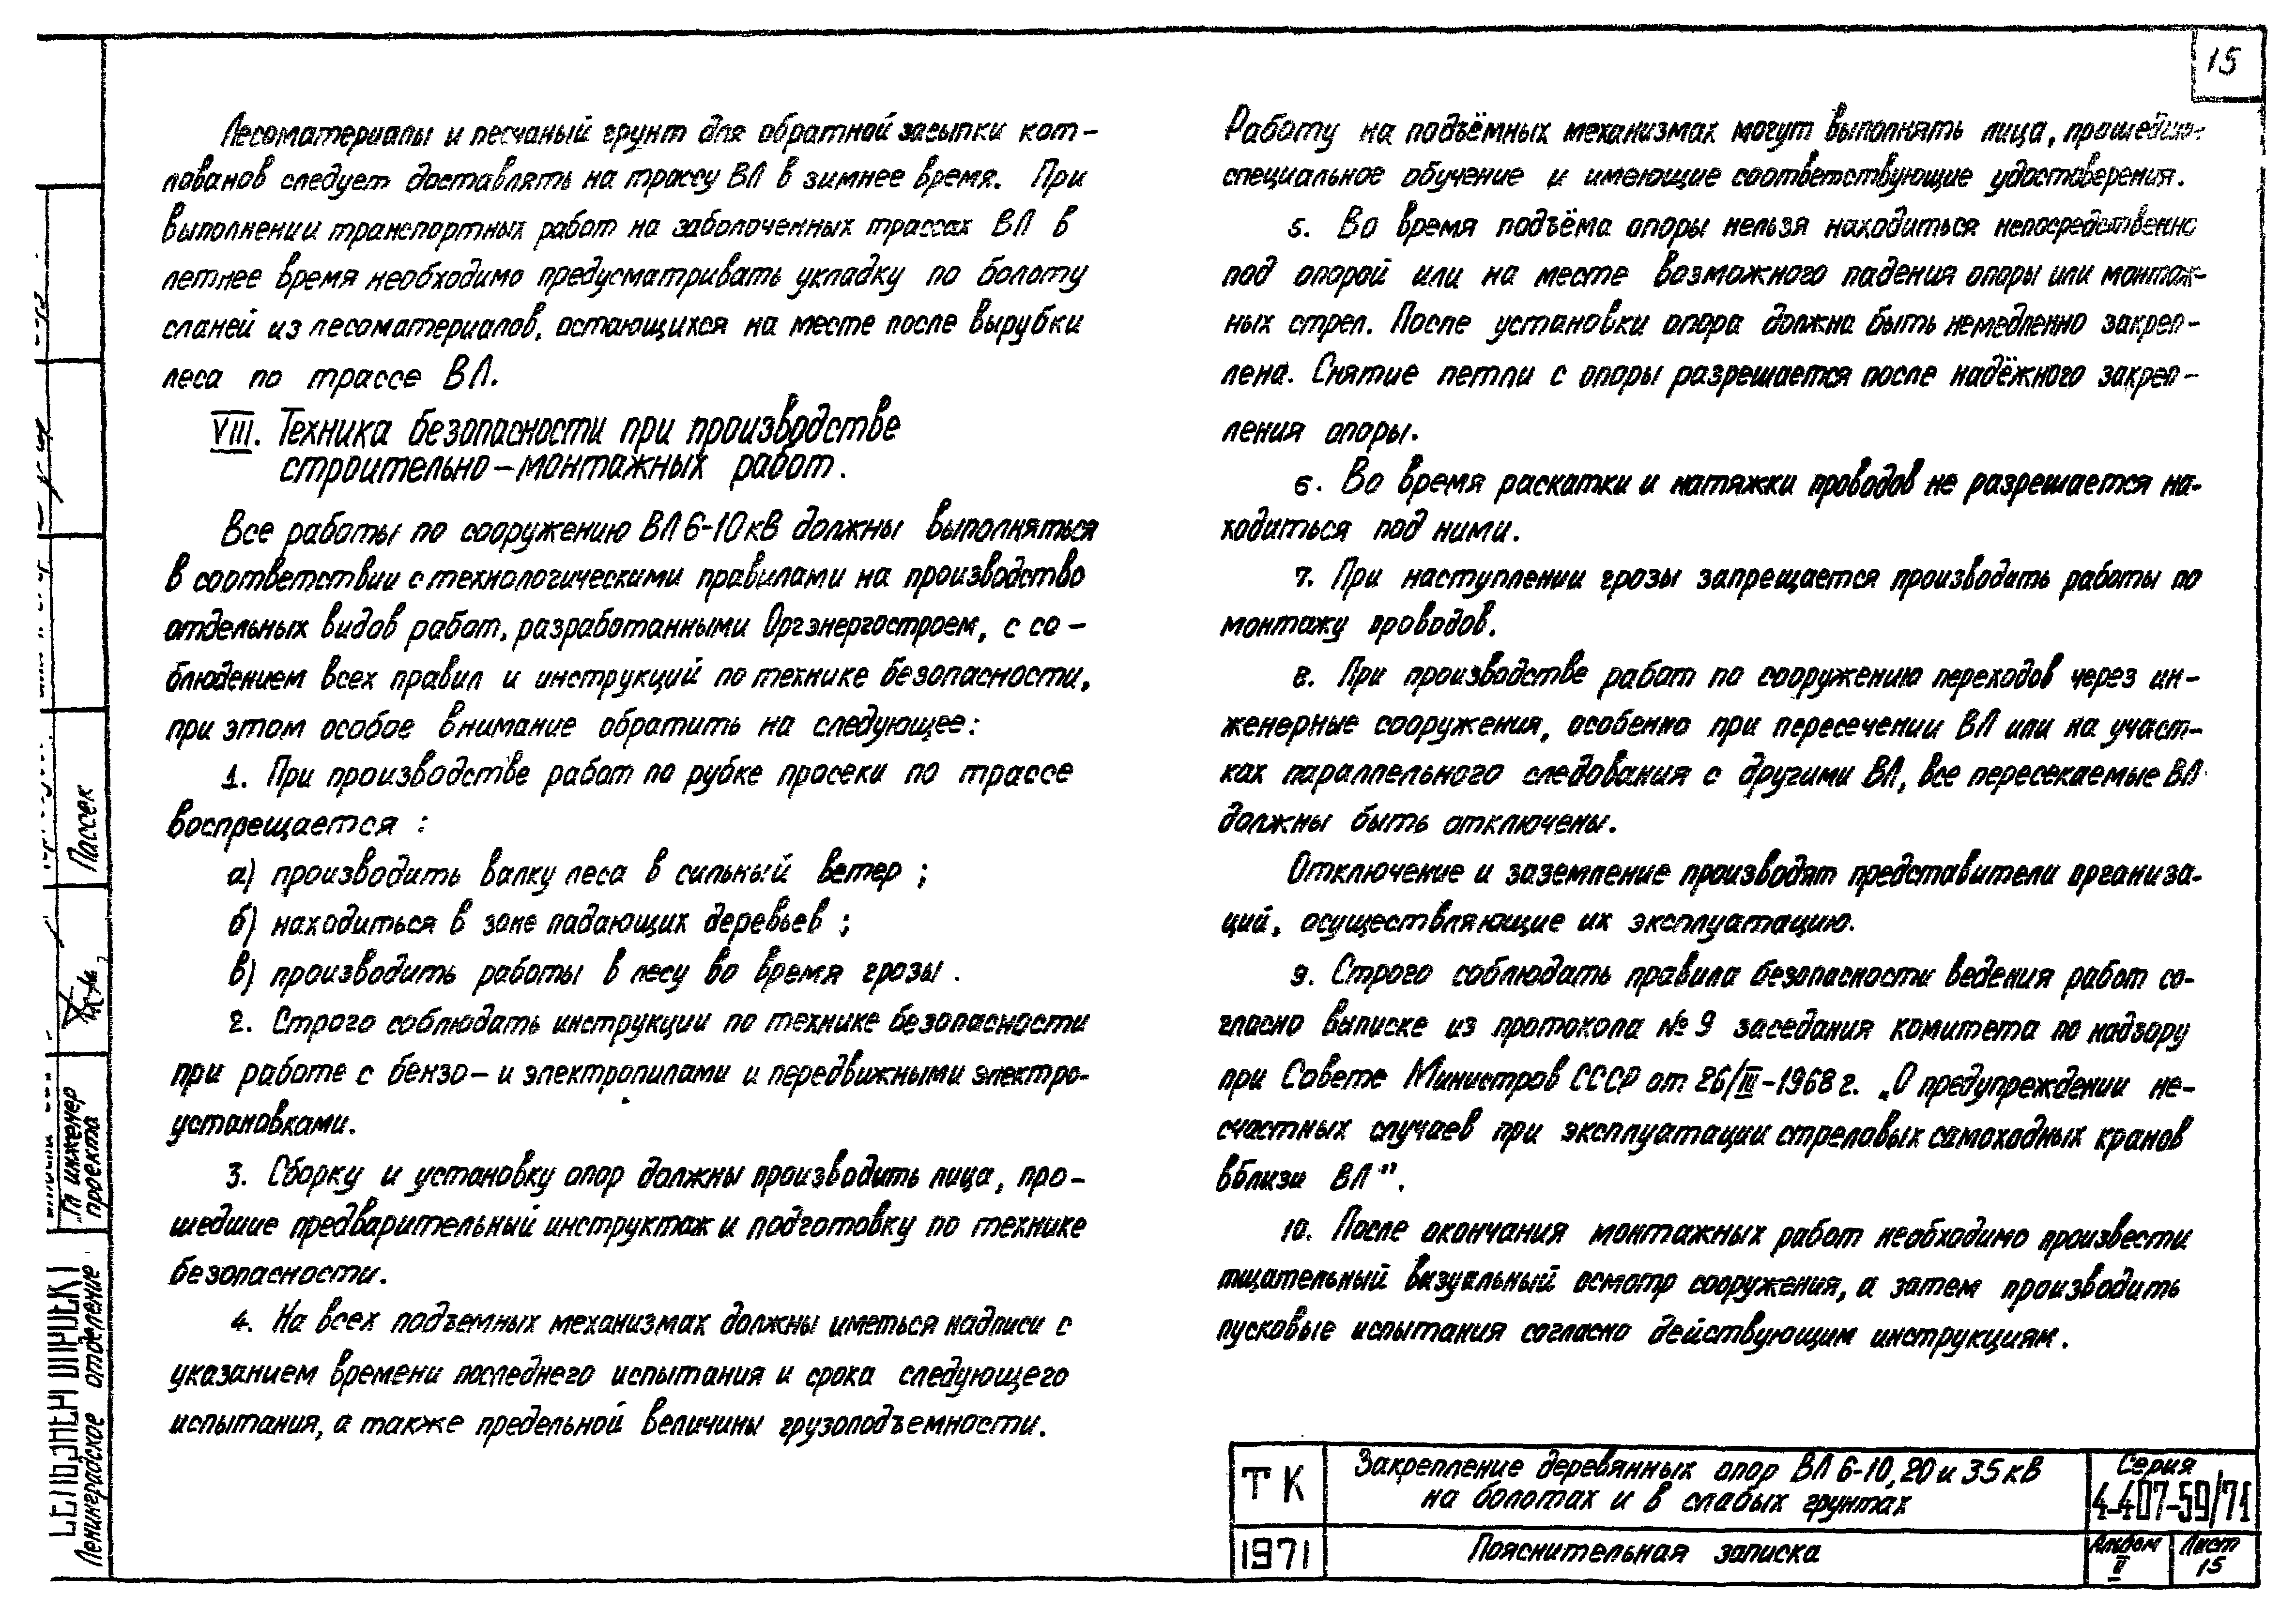 15
Лесоматериалы и песчаный грунт для обратной засыпки кот-
лованов следует доставлять на трассу ВЛ в зимнее время. При
выполнении транспортных работ на заболоченных трассах ВЛ в
летнее время необходимо предусматривать укладку по болоту
сланей из лесоматериалов, остающихся на месте после вырубки
леса по трассе ВЛ.
VIII. Техника безопасности при производстве
строительно-монтажных работ.
Все работы по сооружению ВЛ 6-10 кВ должны выполняться
в соответствии с технологическими правилами на производство
отдельных видов работ, разработанными Оргэнергостроем, с со-
блюдением всех правил и инструкций по технике безопасности,
при этом особое внимание обратить на следующее:
1. При производстве работ по рубке просеки по трассе
воспрещается:
а) производить валку леса в сильный ветер;
б) находиться в зоне падающих деревьев;
в) производить работы в лесу во время грозы.
2. Строго соблюдать инструкции по технике безопасности
при работе с бензо- и электропилами и передвижными электро-
установками.
3. Сборку и установку опор должны производить лица, про-
шедшие предварительный инструктаж и подготовку по технике
безопасности.
4. На всех подъемных механизмах должны иметься надписи с
указанием времени последнего испытания и срока следующего
испытания, а также предельной величины грузоподъемности.
Работу на подъёмных механизмах могут выполнять лица, прошедшие
специальное обучение и имеющие соответствующие удостоверения.
5. Во время подъёма опоры нельзя находиться непосредственно
под опорой или на месте возможного падения опоры или монтаж-
ных стрел. После установки опора должна быть немедленно закреп-
лена. Снятие петли с опоры разрешается после надёжного закреп-
ления опоры.
6. Во время раскатки и натяжки проводов не разрешается на-
ходиться под ними.
7. При наступлении грозы запрещается производить работы по
монтажу проводов.
8. При производстве работ по сооружению переходов через ин-
женерные сооружения, особенно при пересечении ВЛ или на участ-
ках параллельного следования с другими ВЛ, все пересекаемые ВЛ
должны быть отключены.
Отключение и заземление производят представители организа-
ций, осуществляющие их эксплуатацию.
9. Строго соблюдать правила безопасности ведения работ со-
гласно выписке из протокола № 9 заседания комитета по надзору
при Совете Министров СССР от 26/III-1968 г. „О предупреждении не-
счастных случаев при эксплуатации стреловых самоходных кранов
вблизи ВЛ".
10. После окончания монтажных работ необходимо произвести
тщательный визуальный осмотр сооружения, а затем производить
пусковые испытания согласно действующим инструкциям.
ТК
1971
Закрепление деревянных опор ВЛ 6-10, 20 и 35 кВ
на болотах и в слабых грунтах
Пояснительная записка
Серия
4-407-59/71
Альбом
II
Лист
15
Пассек
Гл. инженер
проекта
Ленинградское отделение